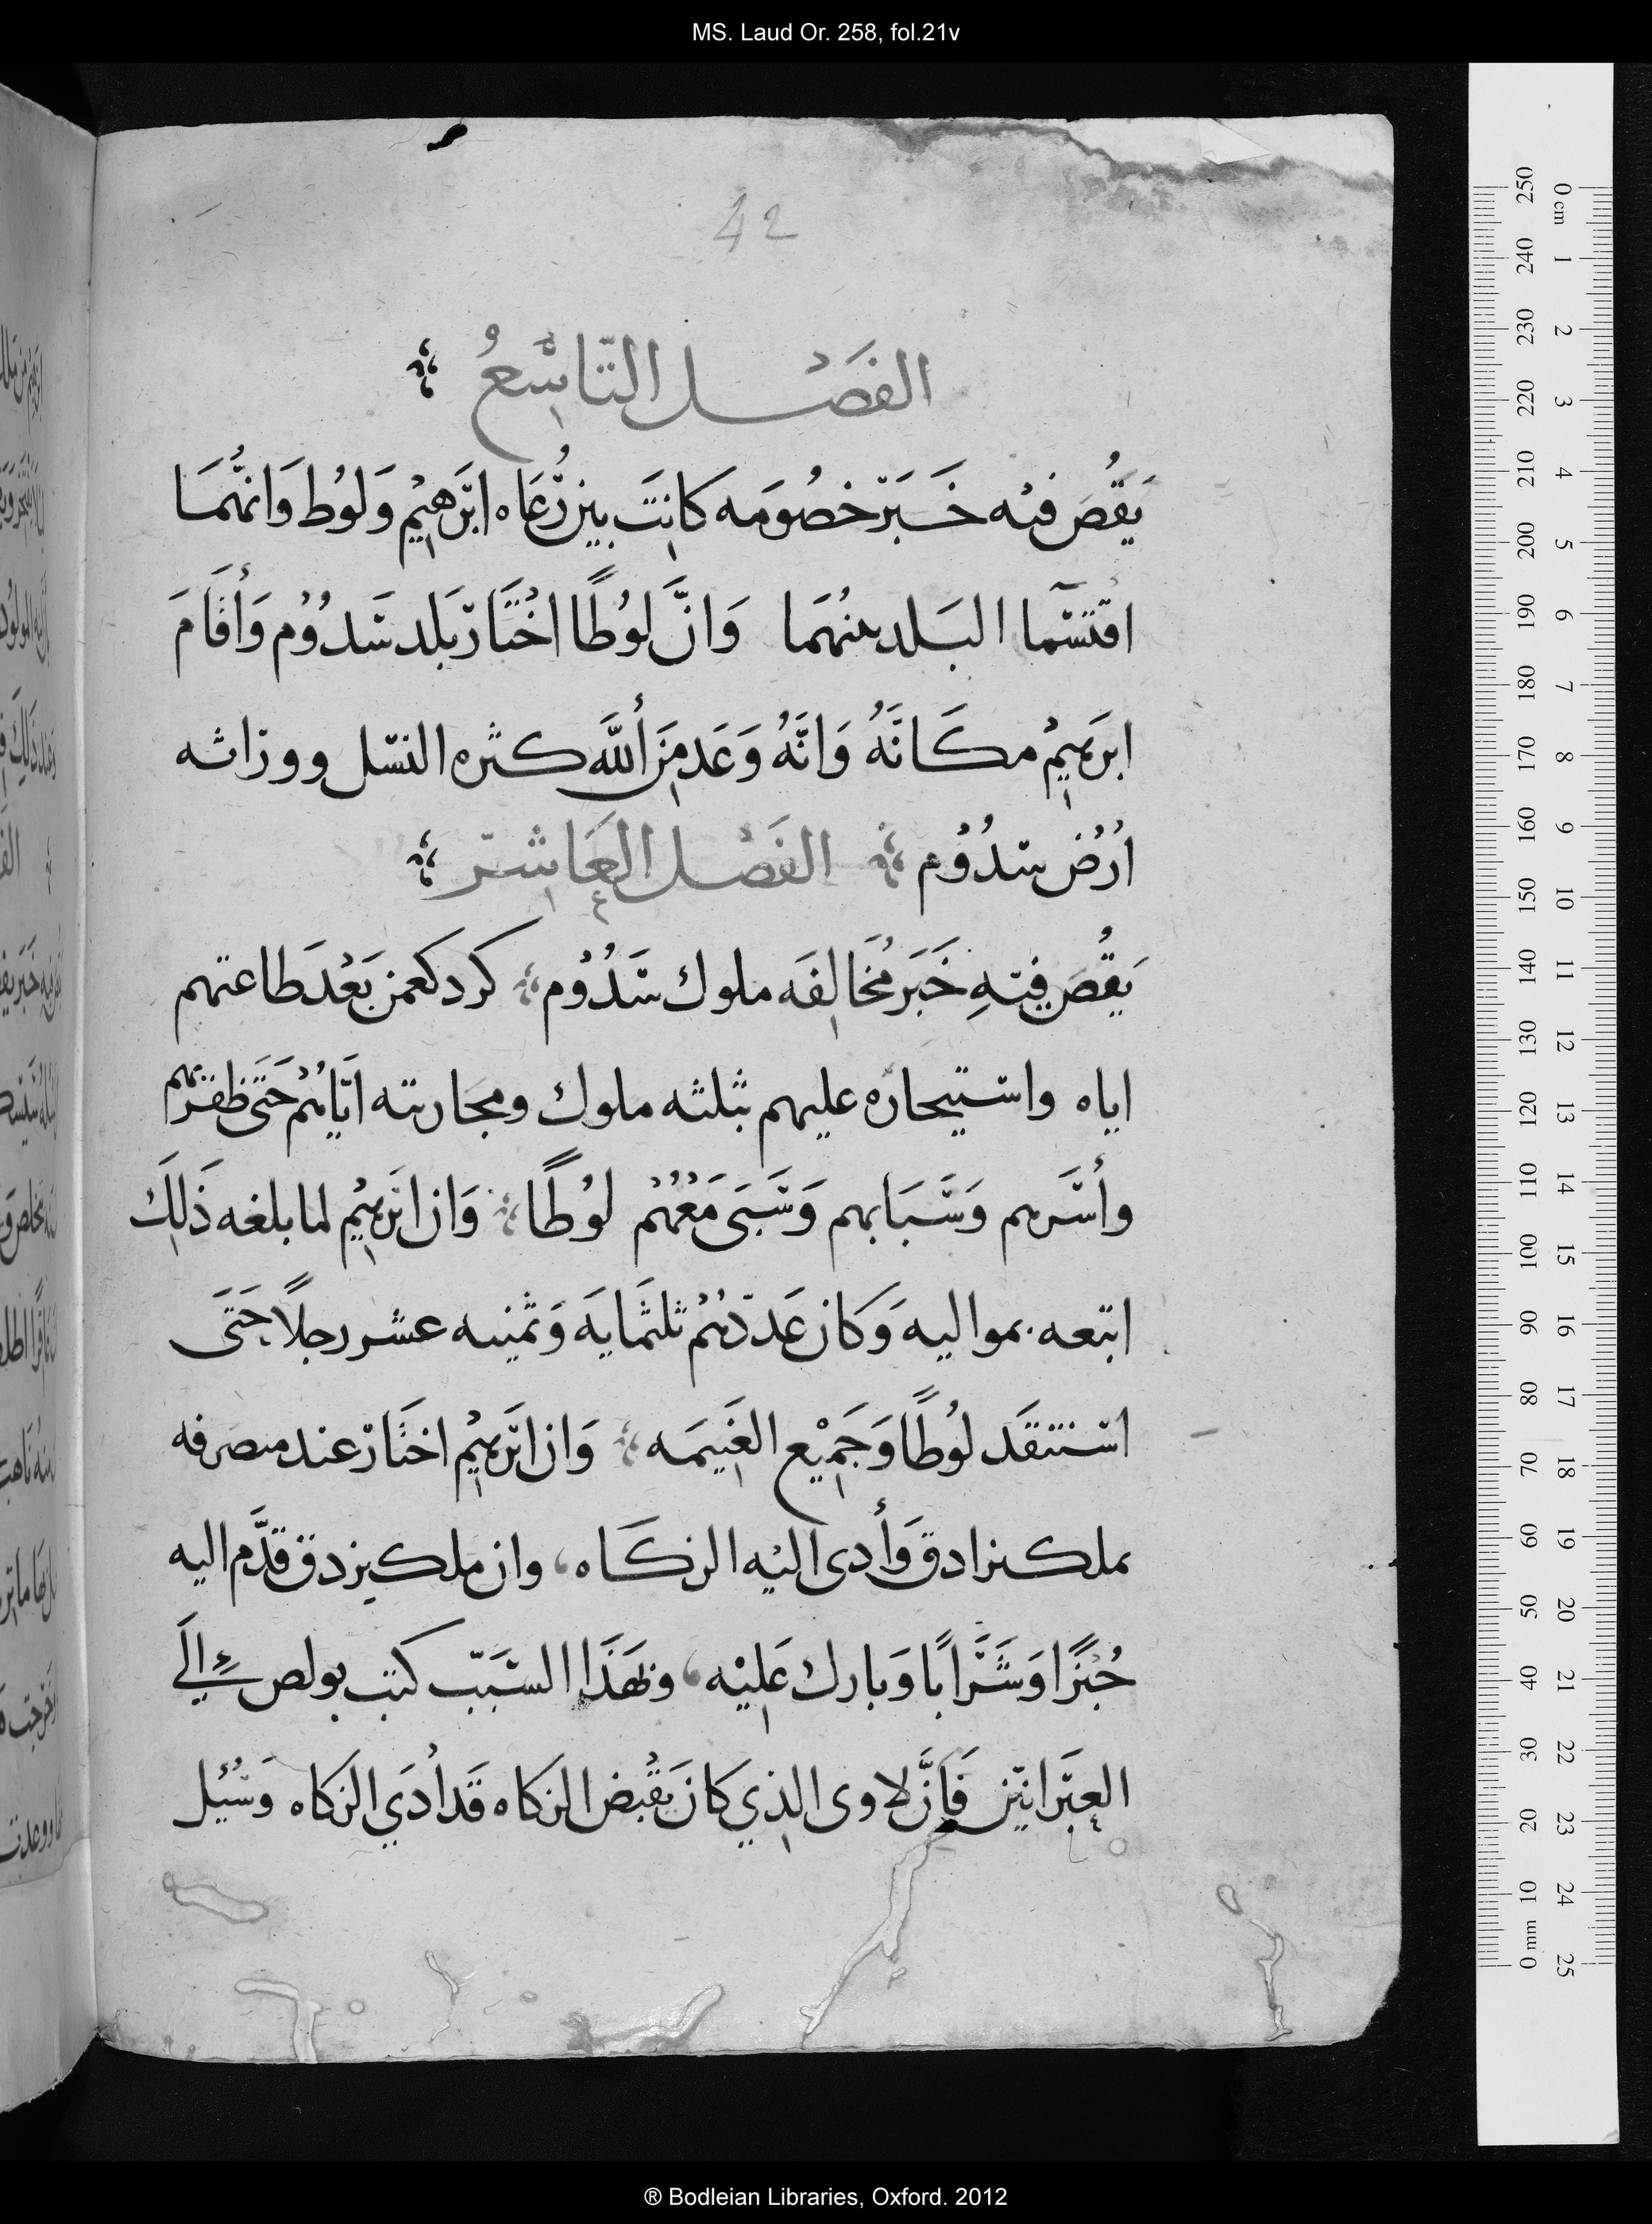 MS. Laud Or. 258, fol.21v
42
الفَصْل التّاسِعُ
يَقُصَ فيْه خَبَرَ خصُومَه كانِتَ بين رُعَاه ابرَهِيْم وَلوُط وَانهُّمَا
اقتسَما البَلد منهُمَا وَانَّ لوُطًا اخْتَارَ بَلد سَدُوْم وَأقَامَ
ابرَهِيْم مكَانَهُ وَانَّهُ وَعَد مِنَ أللَّه كثره النسَل ووراثه
ارْض سَدُوْم الفَصْل العَاشِر
يَقُصَ فيْهِ خَبَرَ مُخَالِفَه ملوك سَدُوْم كردكعمز بَعْدَ طاعتهم
اياه واستيحاره عليهم بثلثه ملوك ومحاربته ايَّاهُمْ حَتَى ظفر بهم
وأسَرهم وَسَبَاهم وَسَبَى مَعْهُمْ لوُطًا وَان ابرَهِيْم لما بلغه ذَلِكَ
اتبعه بمواليه وَكان عَددهُمْ ثلثمَايَه وَثمنيه عشر رجلًا حَتَى
استنقَد لوُطًا وَجَمِيْع الغَنِيمَه وَان ابرَهِيْم اختَار عند منصَرفه
بملكيزادق وَأدى اليْه الزكَاه وان ملكيزدق قدَّم اليه
خُبْزًا وَشَرَابًا وَبارك عَليْه ولهَذَا السَبَب كتب بولص إلَى
العِبَرانيّين فَانَّ لاوى الذِي كانَ يَقْبض الزكاه قَد أدَي الزكاه وَسُئيل
0 cm 1 2 3 4 5 6 7 8 9 10 11 12 13 14 15 16 17 18 19 20 21 22 23 24 25
250 240 230 220 210 200 190 180 170 160 150 140 130 120 110 100 90 80 70 60 50 40 30 20 10 0 mm
® Bodleian Libraries, Oxford. 2012